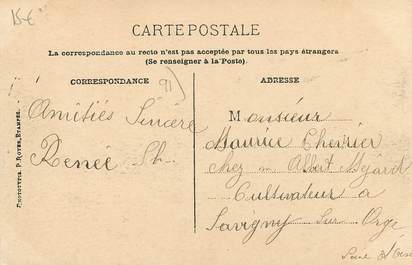 15€
CARTE POSTALE
La correspondance au recto n'est pas acceptée par tous les pays étrangers
(Se renseigner à la Poste).
CORRESPONDANCE
91
ADRESSE
Amitiés Sincère
Renée Sh-
Monsieur
Maurice Chevrier
chez Albert Méjard
Cultivateur à
Savigny sur Orge
Seine &
PHOTOTYPIE P. ROYER, ETAMPES.